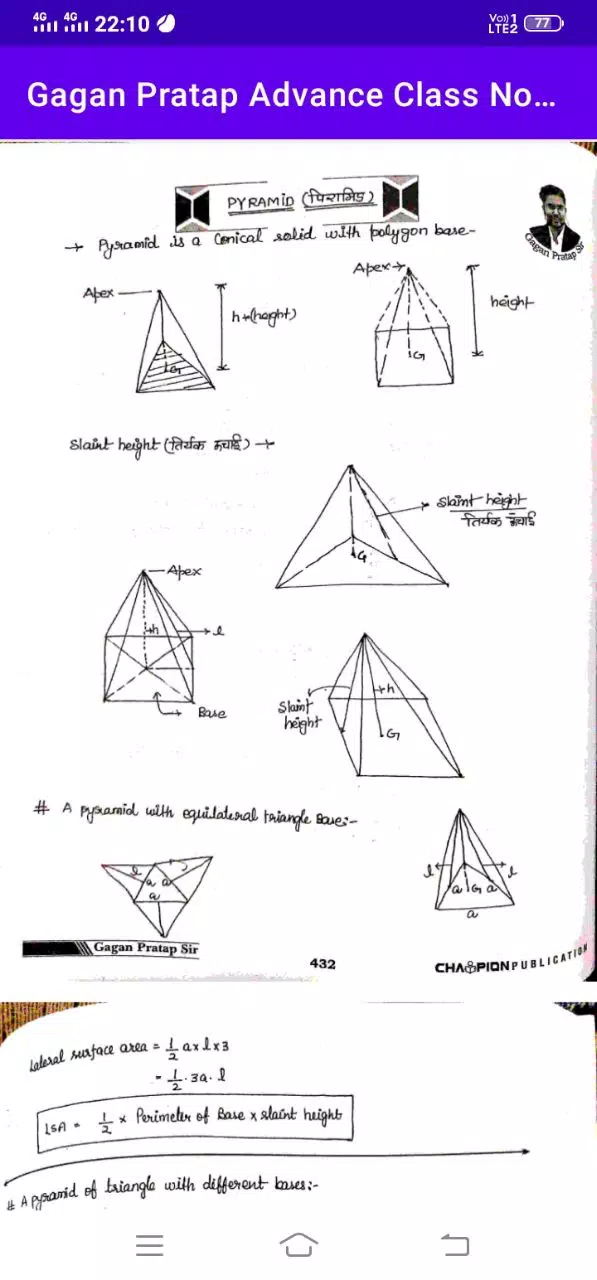 4G 4G 22:10 Vo)) 1 LTE2 77
Gagan Pratap Advance Class No...
PYRAMID (पिरामिड)
→ Pyramid is a Conical solid with polygon base-
Gagan Pratap Sir
Apex
h→(height)
G
Apex→
height
G
Slaint height (तिर्यक ऊचाई) →
Slaint height
तिर्यक ऊंचाई
G
Apex
h
l
Base
Slaint
height
h
G
# A pyramid with equilateral triangle Base:-
l
a a
a
l l
a G a
a
Gagan Pratap Sir
432
CHAMPION PUBLICATION
Lateral surface area = 1/2 a x l x 3
= 1/2 . 3a . l
LSA = 1/2 x Perimeter of Base x slaint height
# A pyramid of triangle with different bases:-